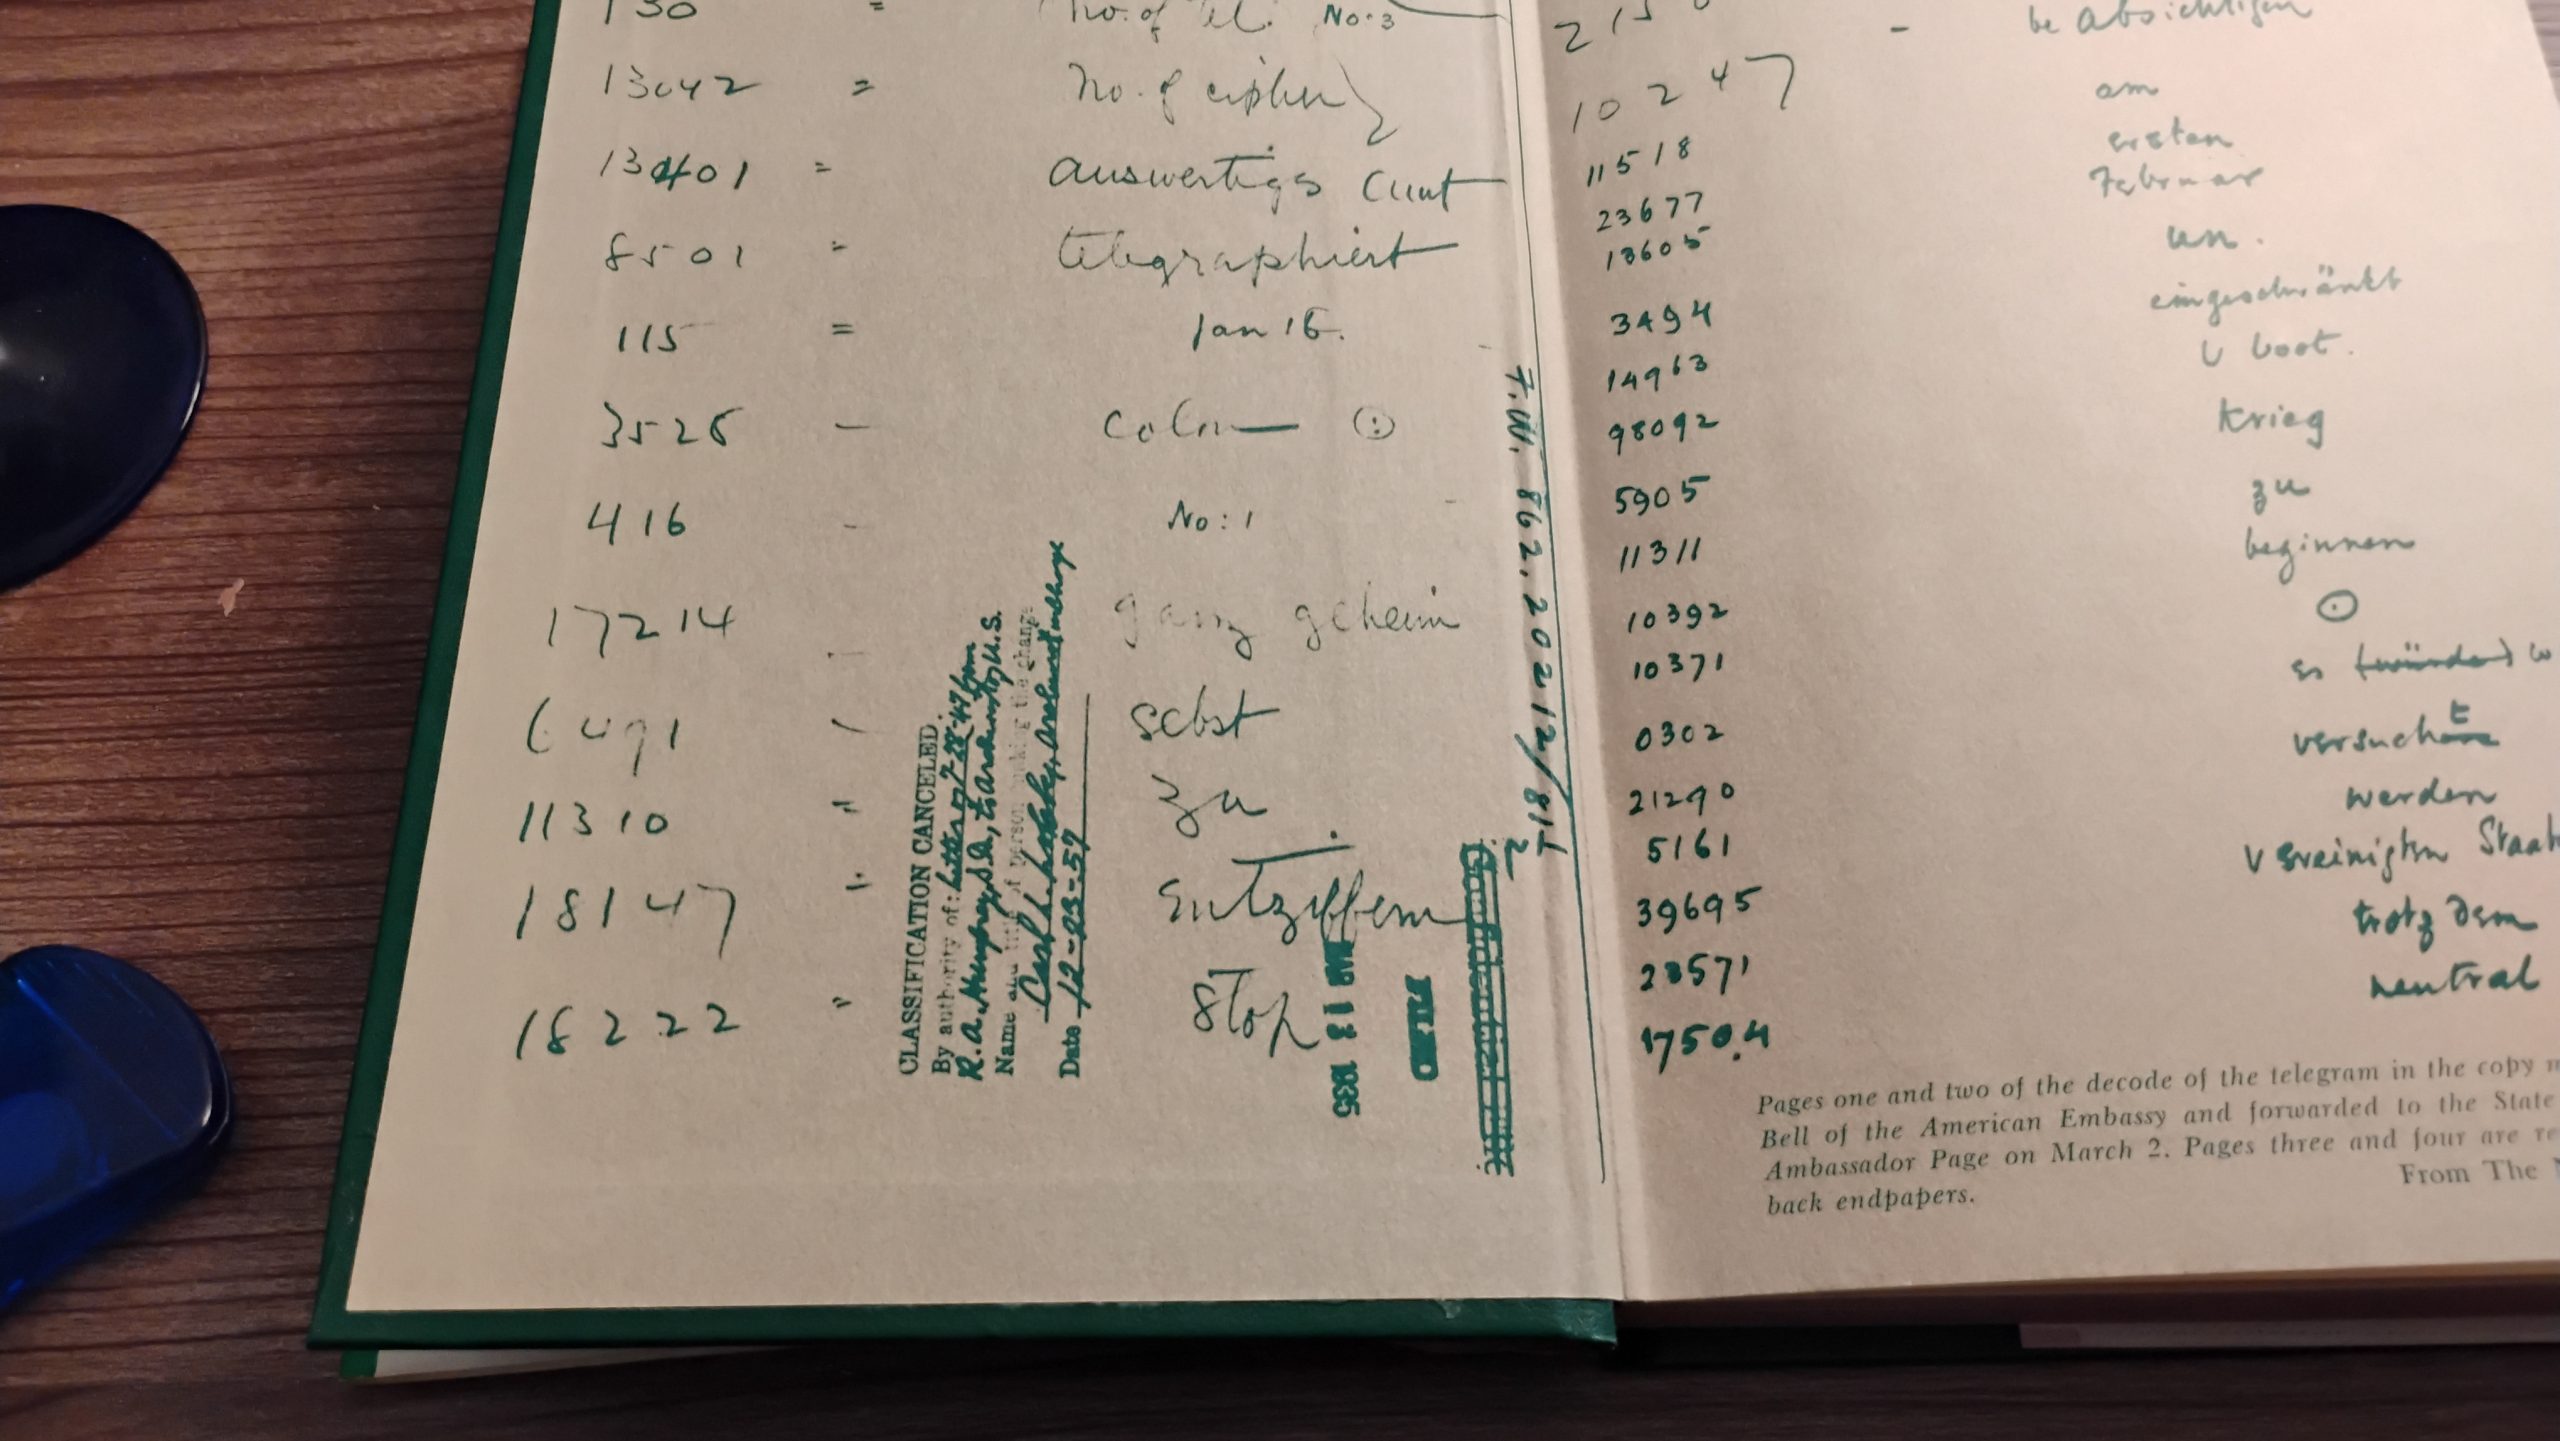 130 = No. of Tel. No: 3
13042 = No. of cipher
13401 = auswertiges amt
8501 = telegraphiert
115 = Jan 16.
3528 - colon
416 - No: 1
17214 ganz geheim
6491 sebst
11310 " zu
18147 " entziffern
18222 " Stop
CLASSIFICATION CANCELED.
By authority of: letter
R.A. Humphrey, to U.S.
Name and title of person making the change
Date 12-23-57
MAR 13 1935
FILED
7.W. 862.20212/81½
be absichtigen
10247 - am
11518 ersten
23677 Februar
13605 un.
3494 eingeschränkt
14963 U boot.
98092 Krieg
5905 zu
11311 beginnen
10392
10371 es
0302 versucht
21290 werden
5161 Vereinigten
39695 trotzdem
23571 neutral
17504
Pages one and two of the decode of the telegram in the copy
Bell of the American Embassy and forwarded to the State
Ambassador Page on March 2. Pages three and four are
back endpapers.
From The